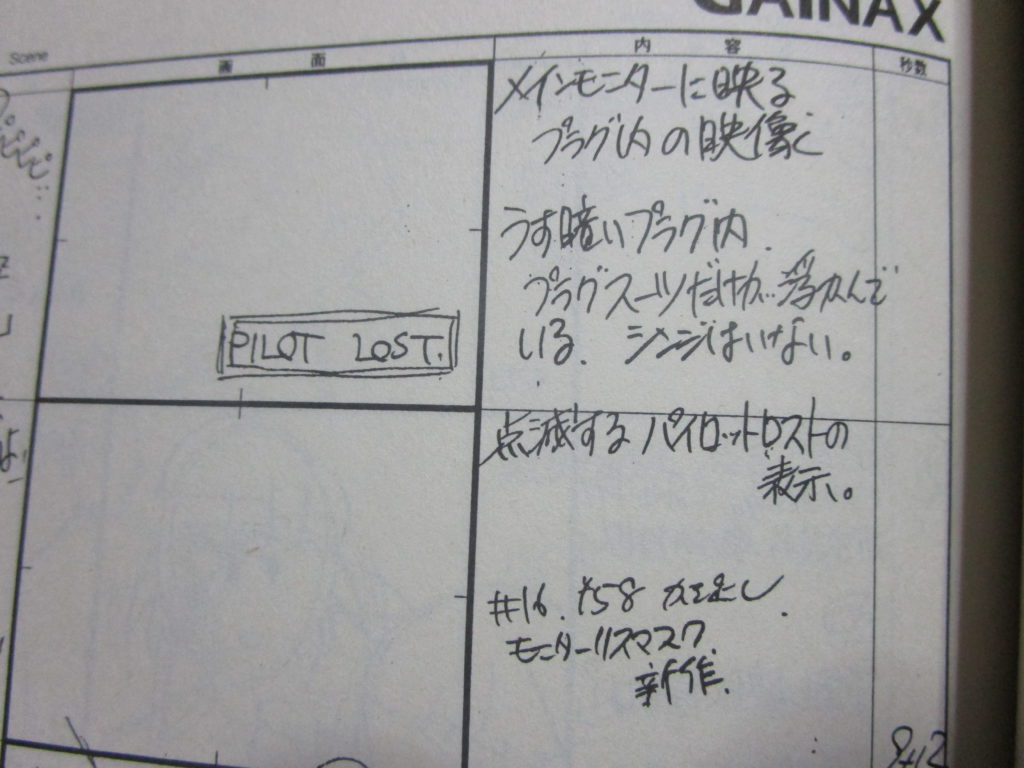 GAINAX
Scene
画面
内容
秒数
メインモニターに映る
プラグ内の映像
うす暗いプラグ内.
プラグスーツだけが…浮かんで
いる. シンジはいない。
PILOT LOST.
点滅するパイロットロストの
表示。
#16.
モニターリスマスク.
新作.
9+12